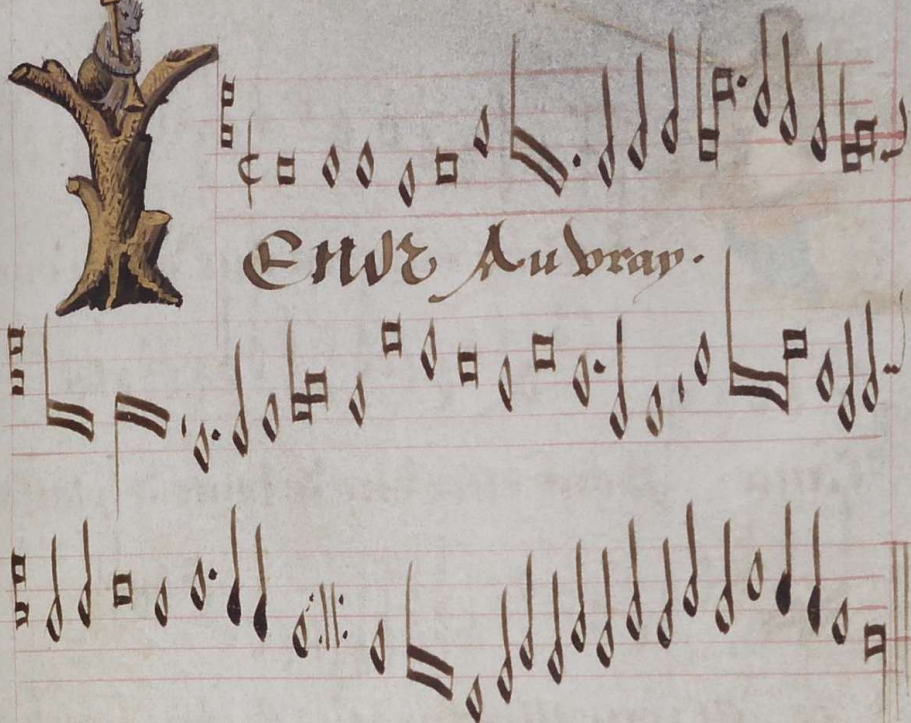 Enor Au vray.